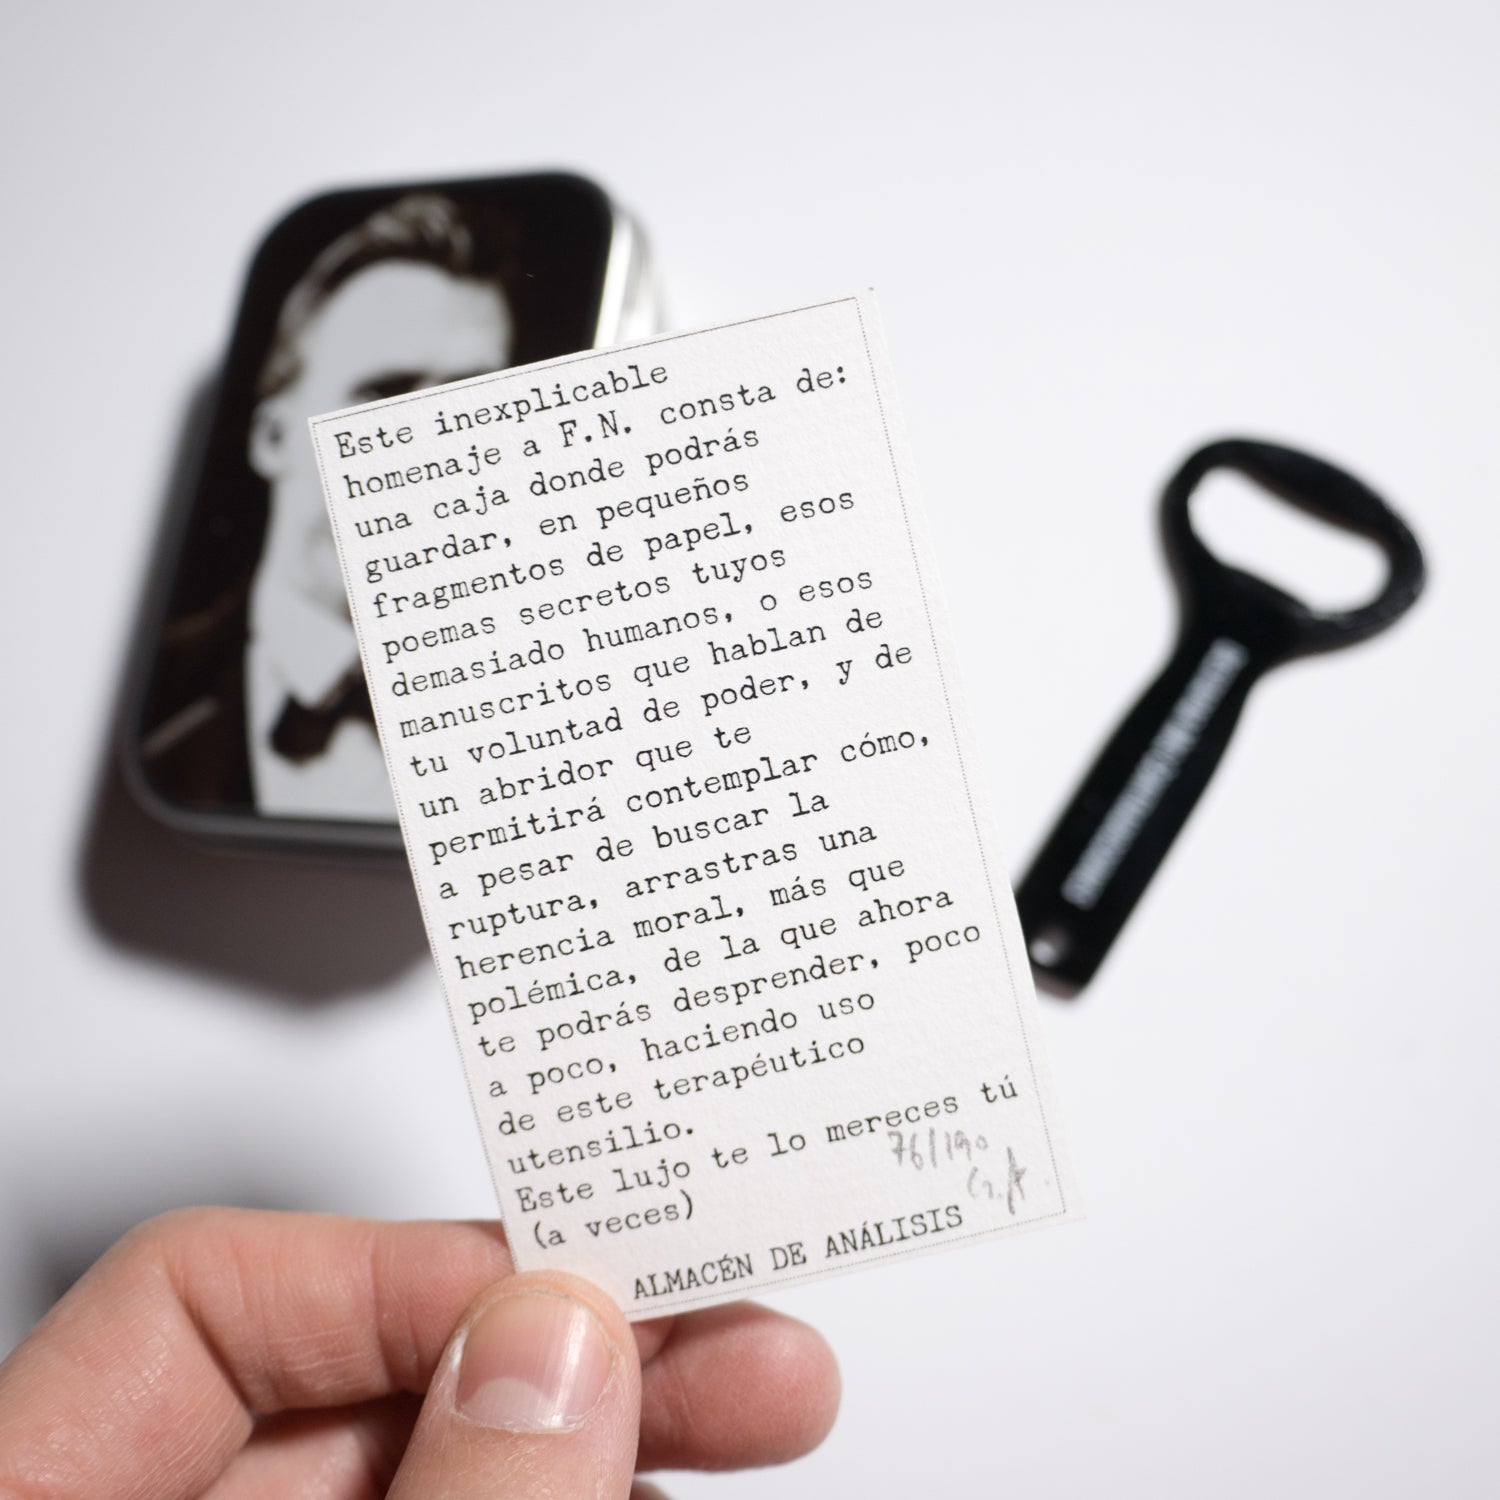 Este inexplicable
homenaje a F.N. consta de:
una caja donde podrás
guardar, en pequeños
fragmentos de papel, esos
poemas secretos tuyos
demasiado humanos, o esos
manuscritos que hablan de
tu voluntad de poder, y de
un abridor que te
permitirá contemplar cómo,
a pesar de buscar la
ruptura, arrastras una
herencia moral, más que
polémica, de la que ahora
te podrás desprender, poco
a poco, haciendo uso
de este terapéutico
utensilio.
Este lujo te lo mereces tú
(a veces)
76/190
ALMACÉN DE ANÁLISIS